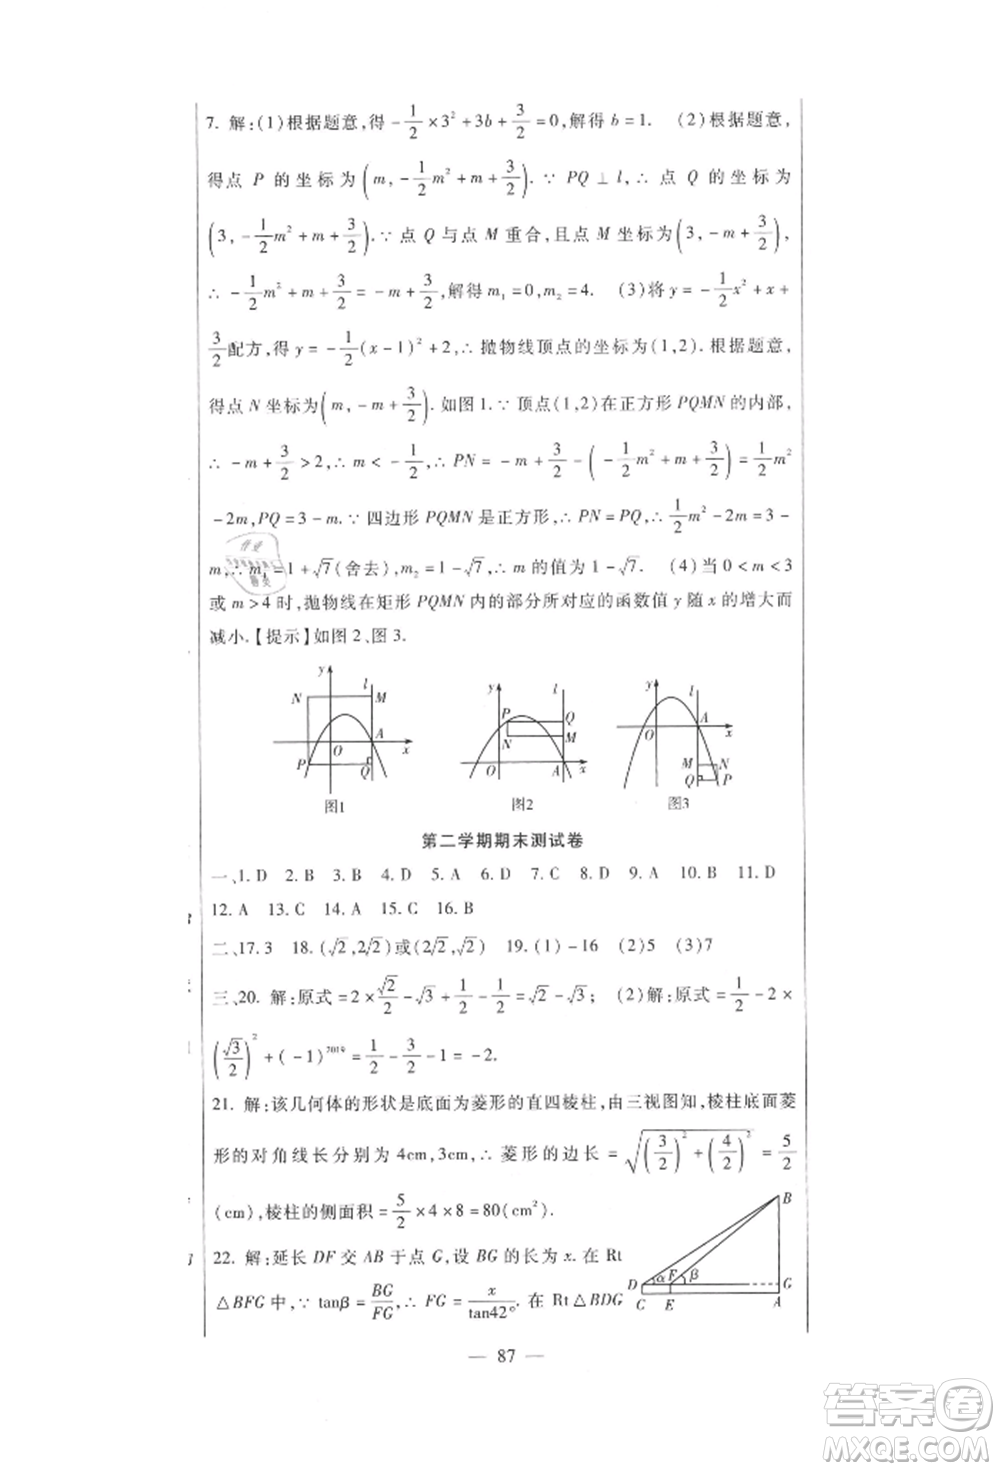 7. 解:(1)根据题意,得 -\frac{1}{2}×3²+3b+\frac{3}{2}=0,解得 b=1. (2)根据题意,
得点 P 的坐标为(m, -\frac{1}{2}m²+m+\frac{3}{2}).∵ PQ⊥l,∴ 点 Q 的坐标为
(3, -\frac{1}{2}m²+m+\frac{3}{2}).∵ 点 Q 与点 M 重合,且点 M 坐标为(3, -m+\frac{3}{2}),
∴ -\frac{1}{2}m²+m+\frac{3}{2}=-m+\frac{3}{2},解得 m₁=0,m₂=4. (3)将 y=-\frac{1}{2}x²+x+
\frac{3}{2}配方,得 y=-\frac{1}{2}(x-1)²+2,∴ 抛物线顶点的坐标为(1,2).根据题意,
得点 N 坐标为(m, -m+\frac{3}{2}).如图 1.∵ 顶点(1,2)在正方形 PQMN 的内部,
∴ -m+\frac{3}{2}>2,∴ m<-\frac{1}{2},∴ PN=-m+\frac{3}{2}-(-\frac{1}{2}m²+m+\frac{3}{2})=\frac{1}{2}m²
-2m,PQ=3-m.∵ 四边形 PQMN 是正方形,∴ PN=PQ,∴ \frac{1}{2}m²-2m=3-
m,∴ m₁=1+√7(舍去),m₂=1-√7,∴ m 的值为 1-√7. (4)当 0<m<3
或 m>4 时,抛物线在矩形 PQMN 内的部分所对应的函数值 y 随 x 的增大而
减小.【提示】如图 2、图 3.
y l N M O A x P Q
图1
y l P Q N M O A x
图2
y l O A x M N Q P
图3
第二学期期末测试卷
一、1. D 2. B 3. B 4. D 5. C 6. D 7. C 8. D 9. A 10. B 11. D
12. A 13. C 14. A 15. C 16. B
二、17. 3 18. (√2,2√2)或(2√2,√2) 19. (1)-16 (2)5 (3)7
三、20. 解:原式=2×\frac{√2}{2}-√3+\frac{1}{2}-\frac{1}{2}=√2-√3; (2)解:原式=\frac{1}{2}-2×
(\frac{√3}{2})²+(-1)²⁰¹⁹=\frac{1}{2}-\frac{3}{2}-1=-2.
21. 解:该几何体的形状是底面为菱形的直四棱柱,由三视图知,棱柱底面菱
形的对角线长分别为 4cm,3cm,∴ 菱形的边长=\sqrt{(\frac{3}{2})²+(\frac{4}{2})²}=\frac{5}{2}
(cm),棱柱的侧面积=\frac{5}{2}×4×8=80(cm²).
22. 解:延长 DF 交 AB 于点 G,设 BG 的长为 x. 在 Rt
△BFG 中,∵ tanβ=\frac{BG}{FG},∴ FG=\frac{x}{tan42°}. 在 Rt△BDG
B D α F β G C E A
— 87 —
答案卷
MXQE.COM